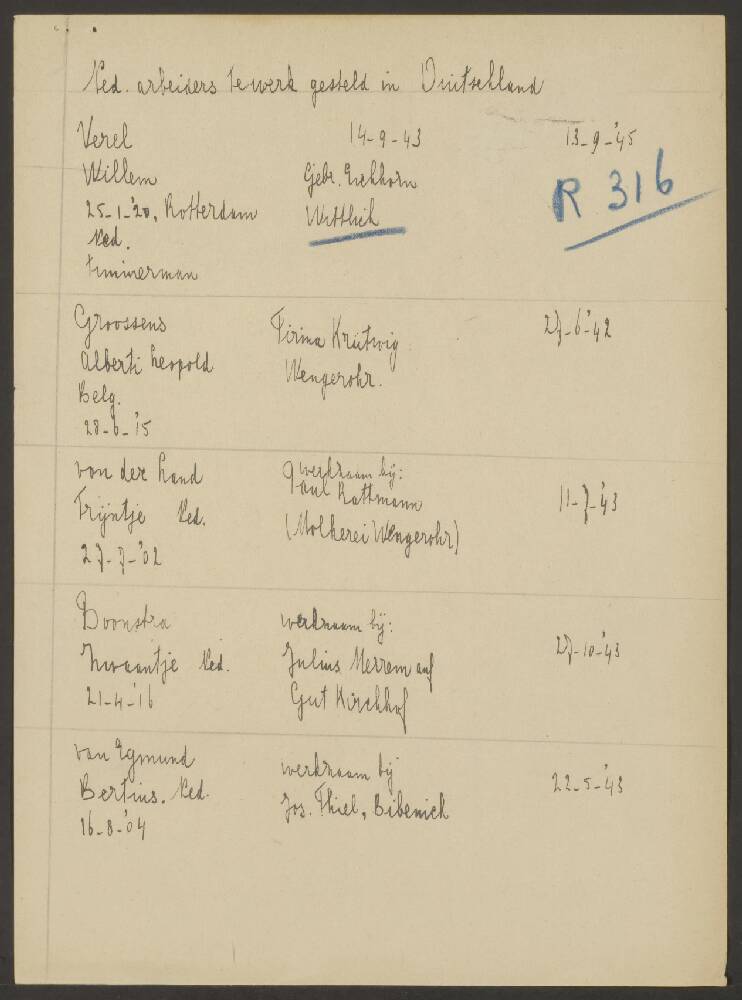 Ned. arbeiders te werk gesteld in Duitschland
Verel 14-9-43 13-9-'45
Willem Gebr. Eichhorn R 316
25-1-'20, Rotterdam Wittlich
Ned.
timmerman
Groossens Firma Krütwig 27-6-'42
Alberti Leopold Wengerohr.
Belg.
28-6-'15
van der Land werkzaam bij:
Trijntje Ned. Paul Rattmann 11-7-'43
27-7-'02 (Molkerei Wengerohr)
Boonstra werkzaam bij:
Zwaantje Ned. Julius Merrem auf 27-10-'43
21-4-'16 Gut Kirchhof
van Egmund werkzaam bij 22-5-'43
Bertius. Ned. Jos. Thiel, Bibenich
16-8-'04